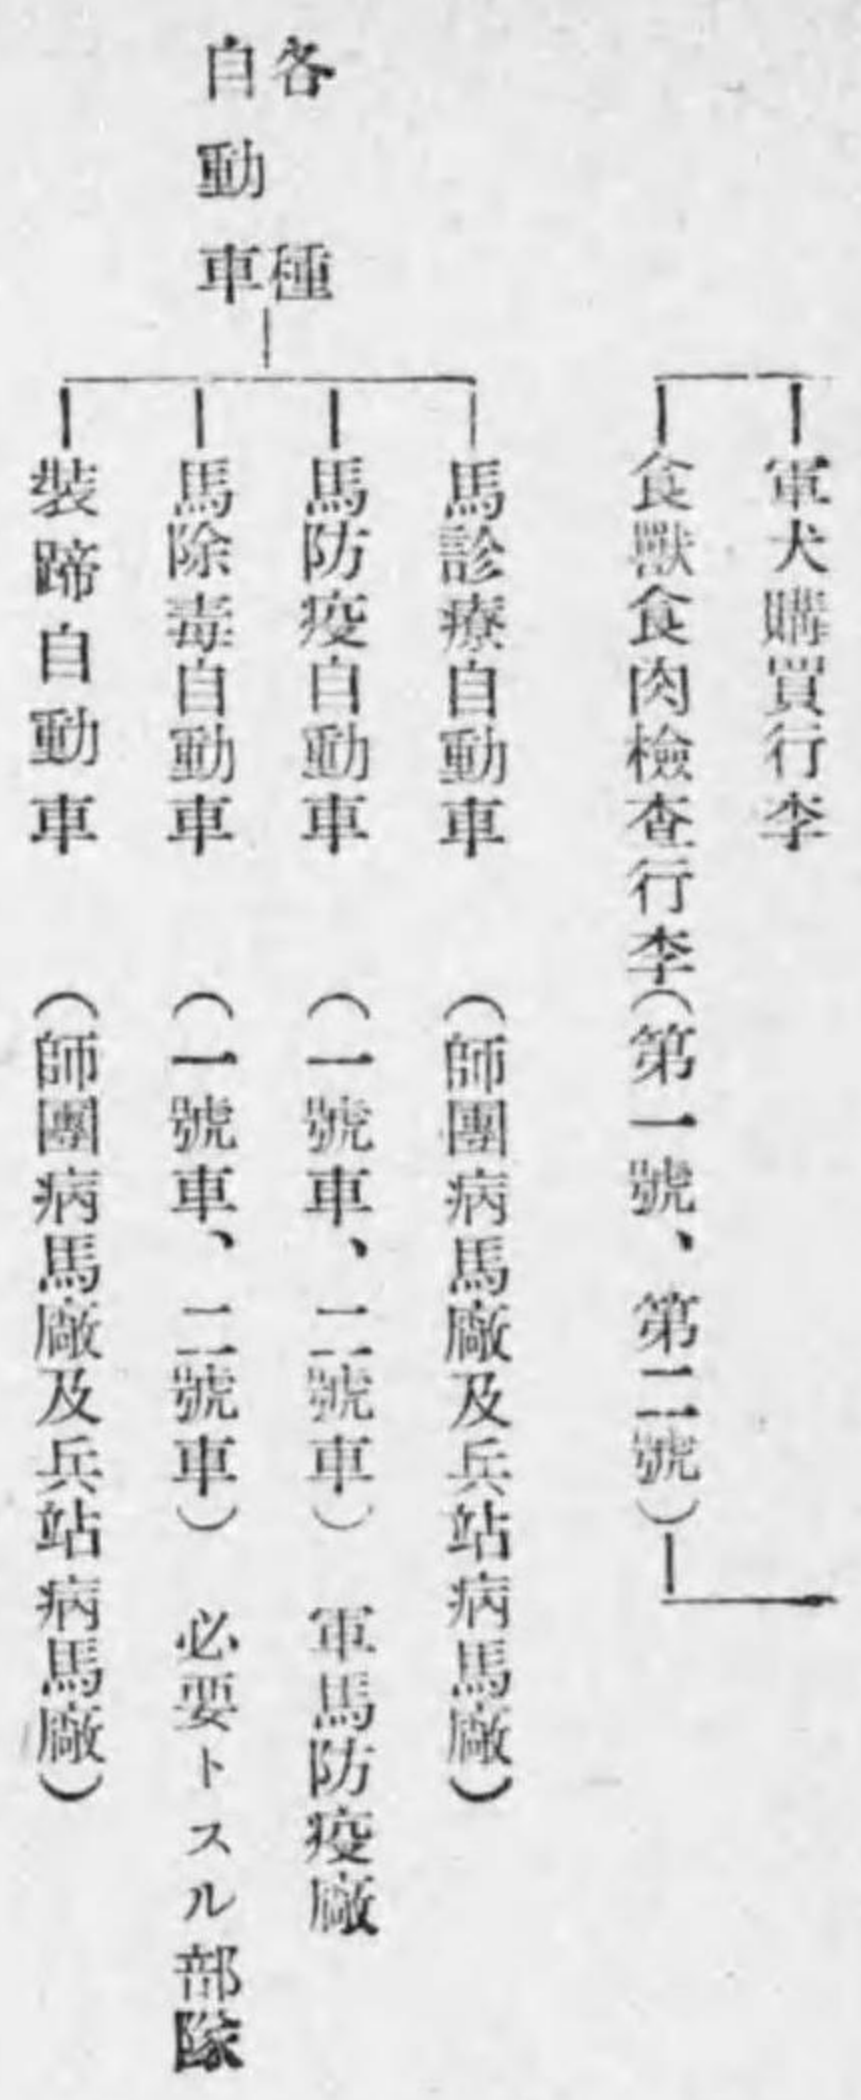 軍犬購買行李
食獸食肉檢査行李(第一號、第二號)
各種
自動車
馬診療自動車 (師團病馬廠及兵站病馬廠)
馬防疫自動車 (一號車、二號車) 軍馬防疫廠
馬除毒自動車 (一號車、二號車) 必要トスル部隊
裝蹄自動車 (師團病馬廠及兵站病馬廠)